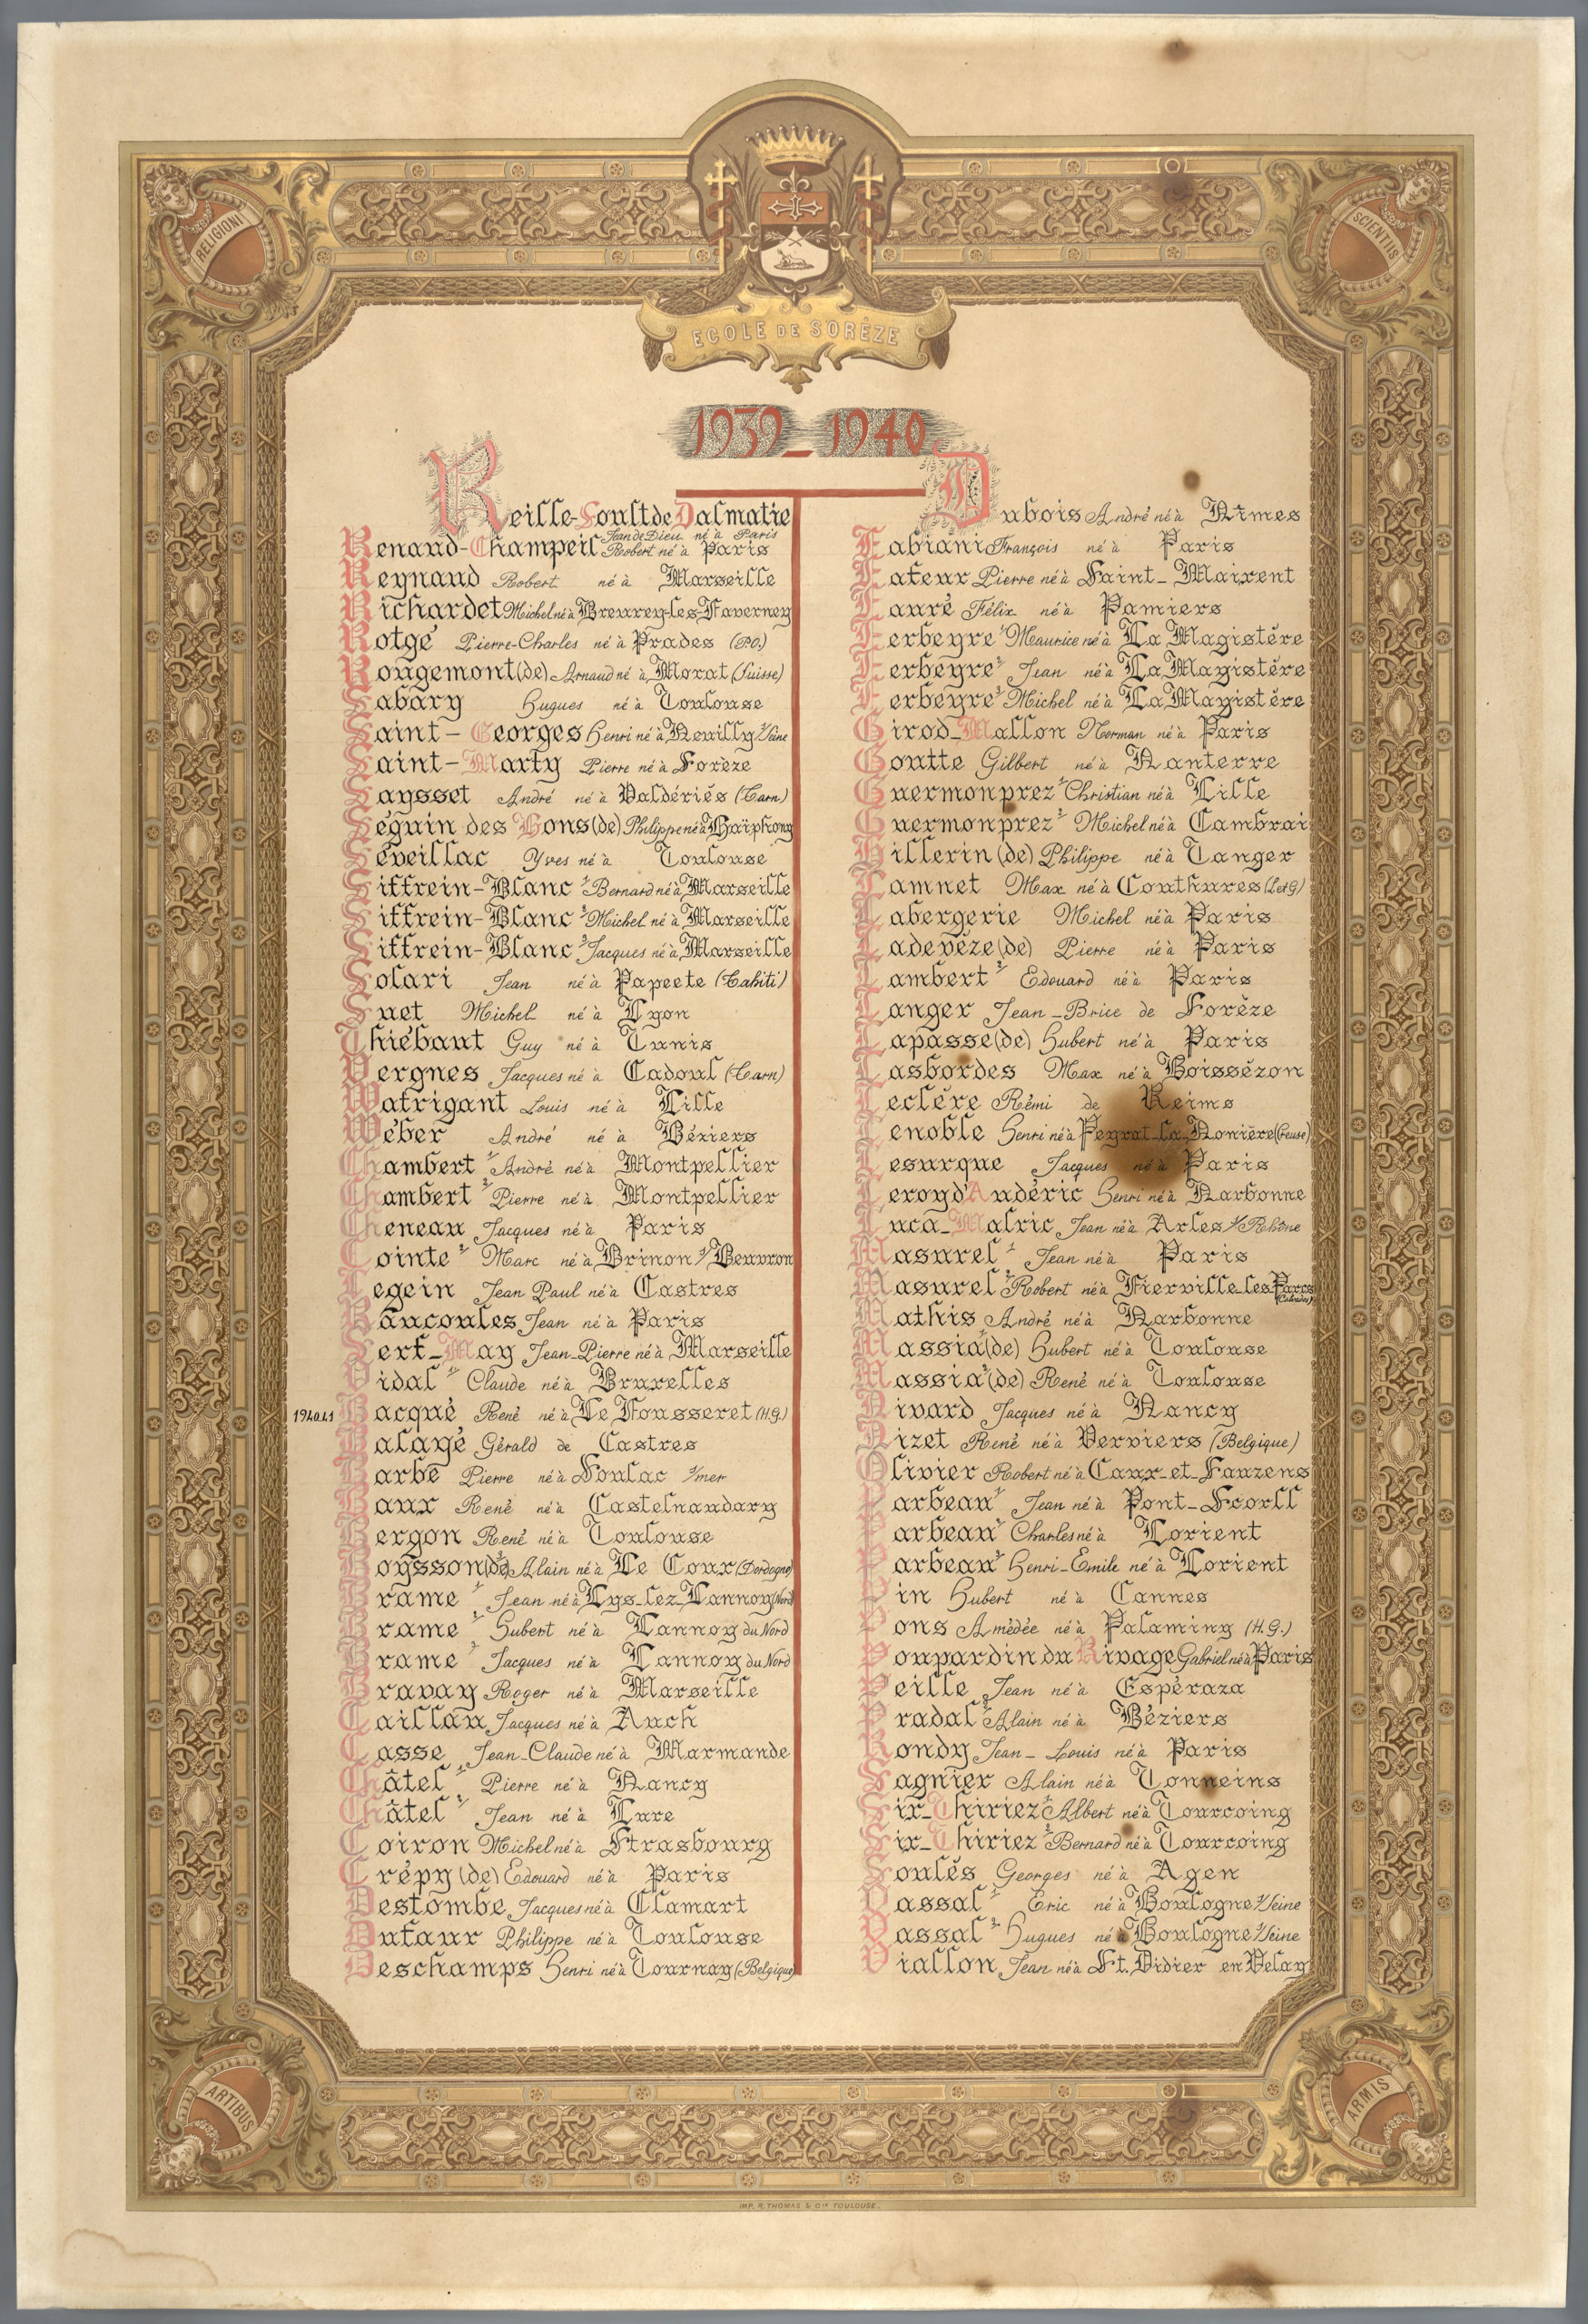 RELIGIONI
SCIENTIIS
ECOLE DE SORÈZE
1939_1940
Reille-Soult de Dalmatie
Jean de Dieu né à Paris
Renaud-Champeil Robert né à Paris
Reynaud Robert né à Marseille
Richardet Michel né à Breurey-les-Faverney
Rotgé Pierre-Charles né à Prades (P.O.)
Rougemont (de) Arnaud né à Morat (Suisse)
Sabary Hugues né à Toulouse
Saint-Georges Henri né à Neuilly s/Seine
Saint-Marty Pierre né à Sorèze
Saysset André né à Valdériès (Tarn)
Séguin des Hons (de) Philippe né à Haïphong
Séveillac Yves né à Toulouse
Siffrein-Blanc 1 Bernard né à Marseille
Siffrein-Blanc 2 Michel né à Marseille
Siffrein-Blanc 3 Jacques né à Marseille
Solari Jean né à Papeete (Tahiti)
Suet Michel né à Lyon
Thiébaut Guy né à Tunis
Vergnes Jacques né à Cadoul (Tarn)
Watrigant Louis né à Lille
Wéber André né à Béziers
Chambert 1 André né à Montpellier
Chambert 2 Pierre né à Montpellier
Cheneau Jacques né à Paris
Cointe 2 Marc né à Brinon s/Beuvron
Legein Jean Paul né à Castres
Bancoules Jean né à Paris
Sert_May Jean-Pierre né à Marseille
Vidal Claude né à Bruxelles
1940.41 Bacqué René né à Le Fousseret (H.G.)
Balayé Gérald de Castres
Barbe Pierre né à Soulac s/mer
Baux René né à Castelnaudary
Bergon René né à Toulouse
Boysson (de) Alain né à Le Coux (Dordogne)
Brame 1 Jean né à Lys-lez-Lannoy (Nord)
Brame 2 Hubert né à Lannoy du Nord
Brame 3 Jacques né à Lannoy du Nord
Bravay Roger né à Marseille
Caillau Jacques né à Auch
Casse Jean-Claude né à Marmande
Châtel 1 Pierre né à Nancy
Châtel 2 Jean né à Lure
Coiron Michel né à Strasbourg
Crépy (de) Edouard né à Paris
Destombe Jacques né à Clamart
Dufaur Philippe né à Toulouse
Deschamps Henri né à Tournay (Belgique)
Dubois André né à Nîmes
Fabiani François né à Paris
Fateux Pierre né à Saint-Maixent
Fauré Félix né à Pamiers
Ferbeyre 1 Maurice né à La Magistère
Ferbeyre 2 Jean né à La Magistère
Ferbeyre 3 Michel né à La Magistère
Girod_Mallon Norman né à Paris
Goutte Gilbert né à Nanterre
Guermonprez 1 Christian né à Lille
Guermonprez 2 Michel né à Cambrai
Hillerin (de) Philippe né à Tanger
Lamnet Max né à Couthures (L et G)
Labergerie Michel né à Paris
Ladevèze (de) Pierre né à Paris
Lambert 2 Edouard né à Paris
Langer Jean-Brice de Sorèze
Lapasse (de) Hubert né à Paris
Lasbordes Max né à Boissézon
Leclère Rémi de Reims
Lenoble Henri né à Peyrat-la-Nonière (Creuse)
Lesurque Jacques né à Paris
Leroy d'Audéric Henri né à Narbonne
Luca_Malric Jean né à Arles s/Rhône
Masurel 1 Jean né à Paris
Masurel 2 Robert né à Fierville-les-Parcs (Calvados)
Mathis André né à Narbonne
Massia 1 (de) Hubert né à Toulouse
Massia 2 (de) René né à Toulouse
Nivard Jacques né à Nancy
Nizet René né à Verviers (Belgique)
Olivier Robert né à Caux-et-Sauzens
Parbeau 1 Jean né à Pont-Scorff
Parbeau 2 Charles né à Lorient
Parbeau 3 Henri-Emile né à Lorient
Pin Hubert né à Cannes
Pons Amédée né à Palaminy (H.G.)
Poupardin du Rivage Gabriel né à Paris
Peille Jean né à Espéraza
Pradal 2 Alain né à Béziers
Rondy Jean-Louis né à Paris
Sagnier Alain né à Tonneins
Six_Thiriez 1 Albert né à Tourcoing
Six_Thiriez 2 Bernard né à Tourcoing
Soulés Georges né à Agen
Vassal 1 Eric né à Boulogne s/Seine
Vassal 2 Hugues né à Boulogne s/Seine
Viallon Jean né à St. Didier en Velay
ARTIBUS
ARMIS
IMP. R. THOMAS & Cie TOULOUSE.